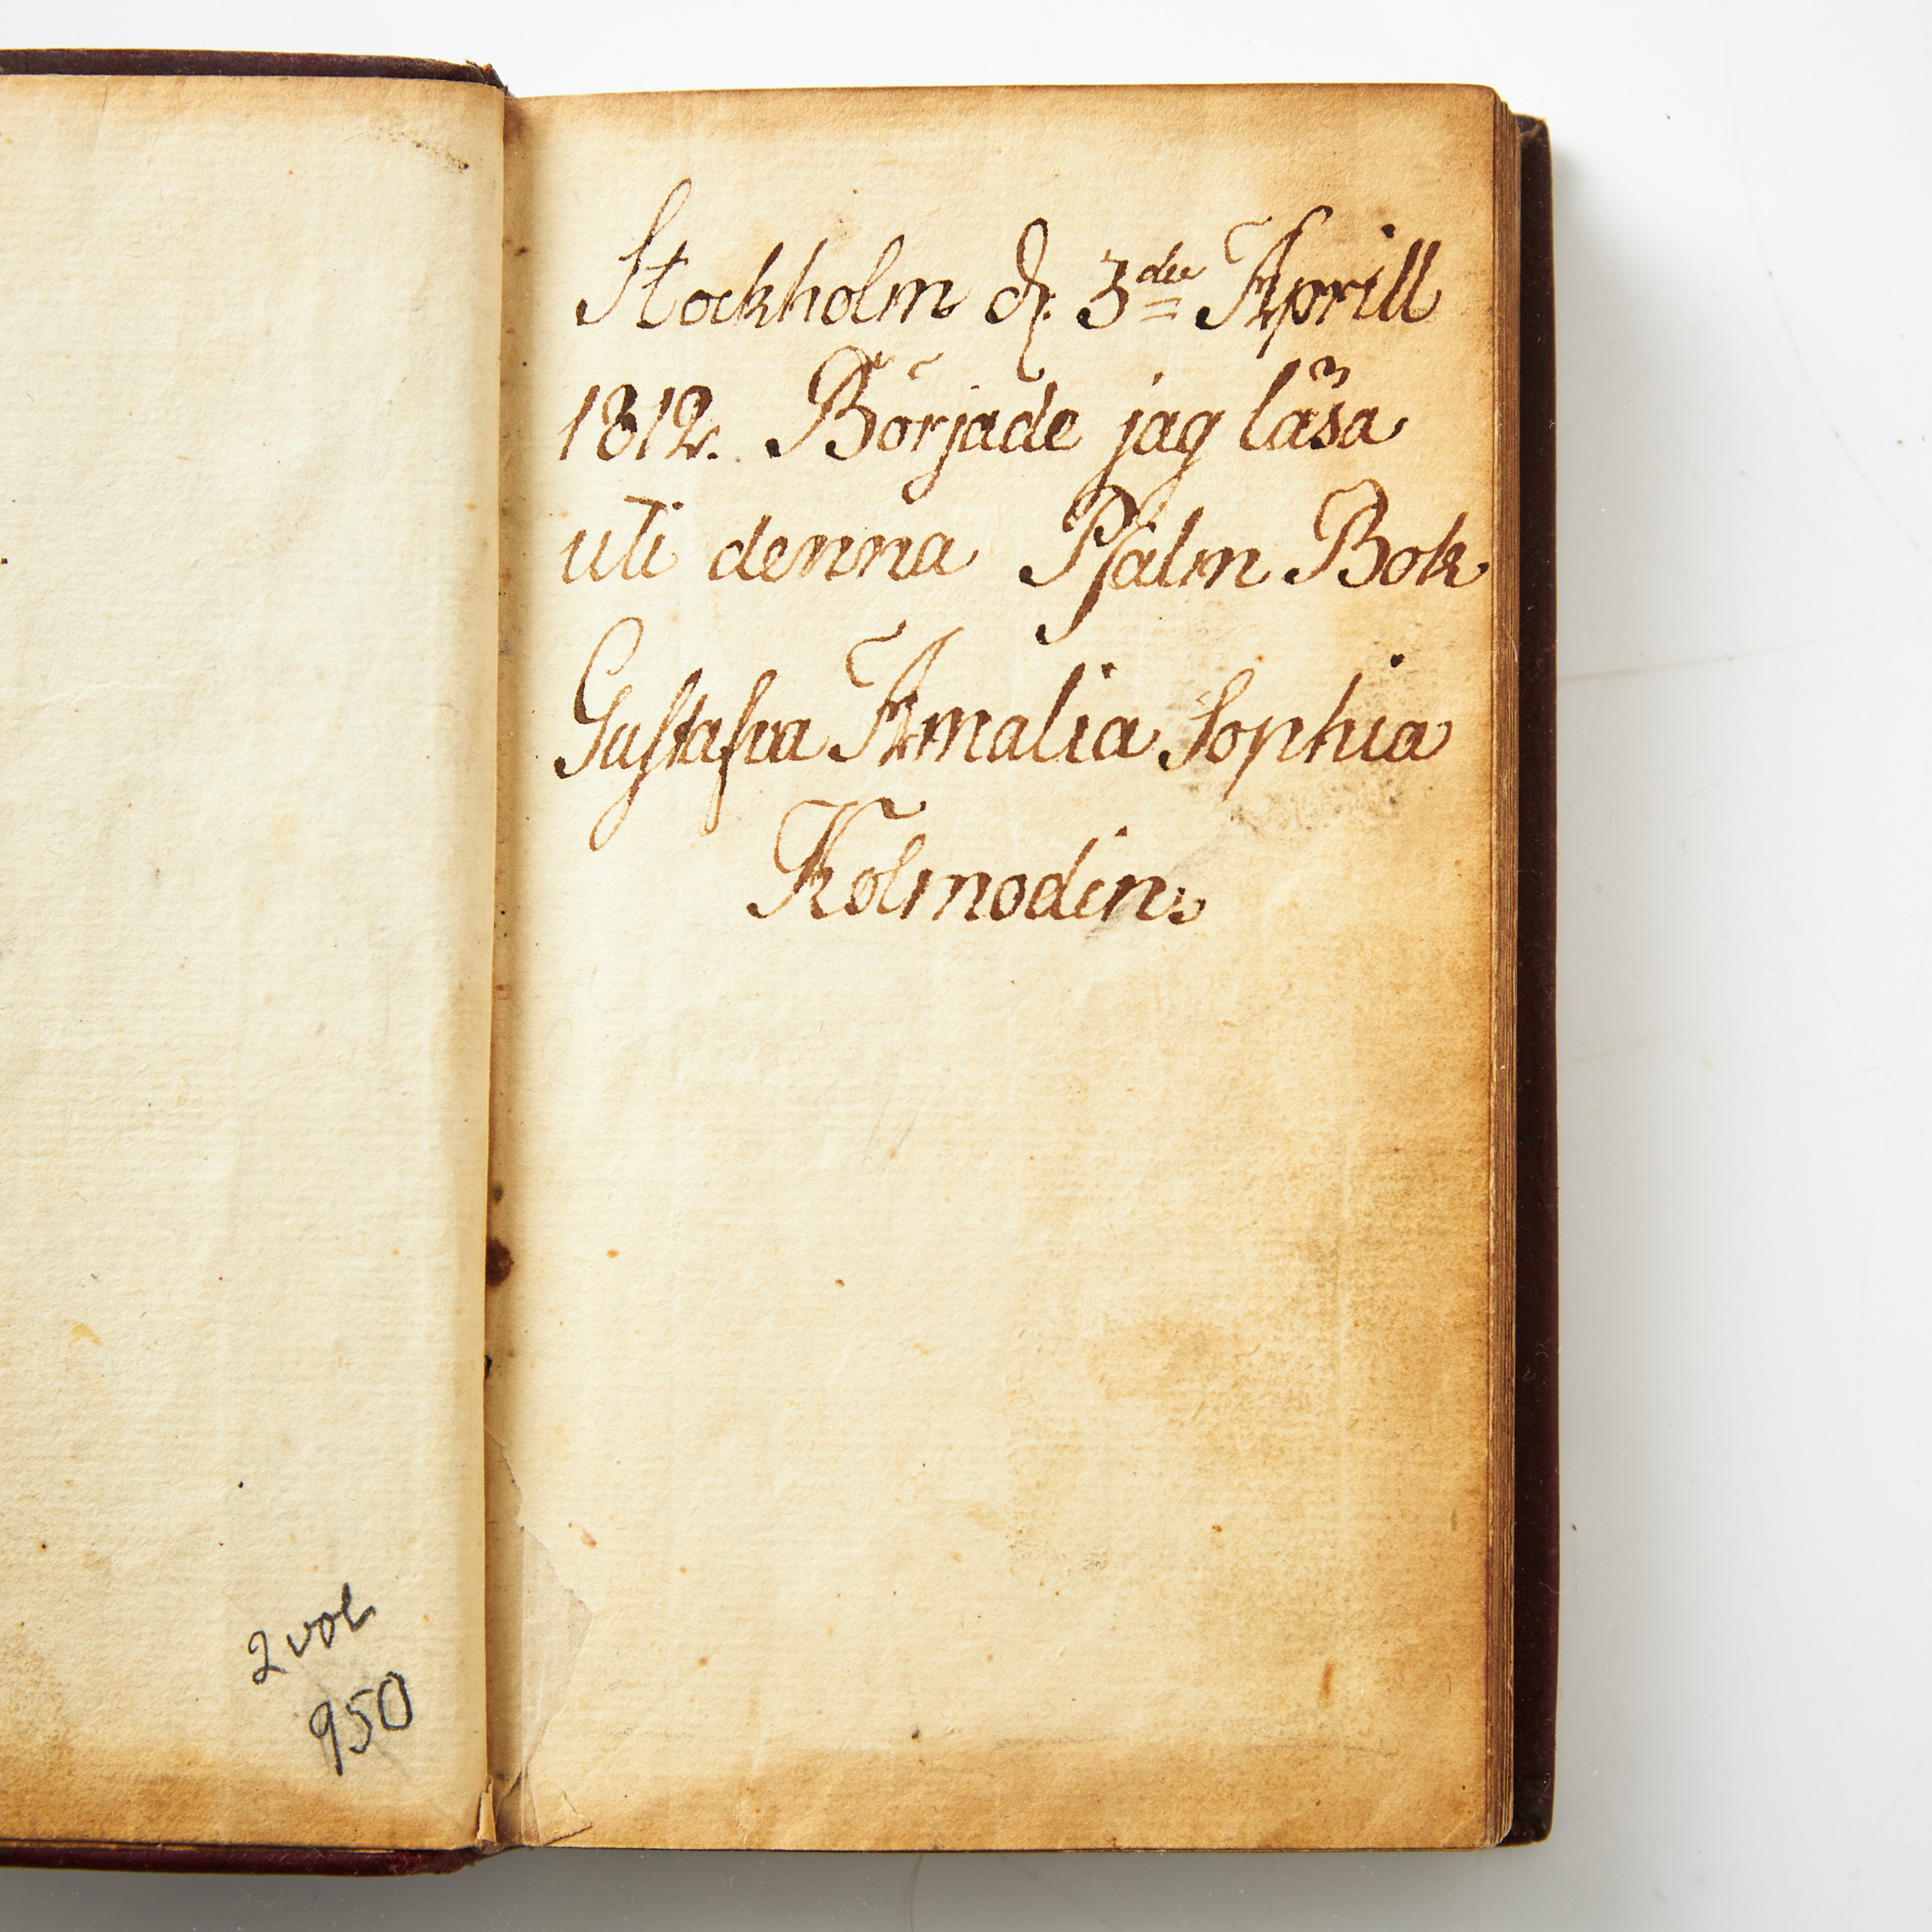 2 vol
950
Stockholm d. 3die Aprill
1812. Började jag läsa
uti denna Psalm Bok
Gustafva Amalia Sophia
Kolmodin.